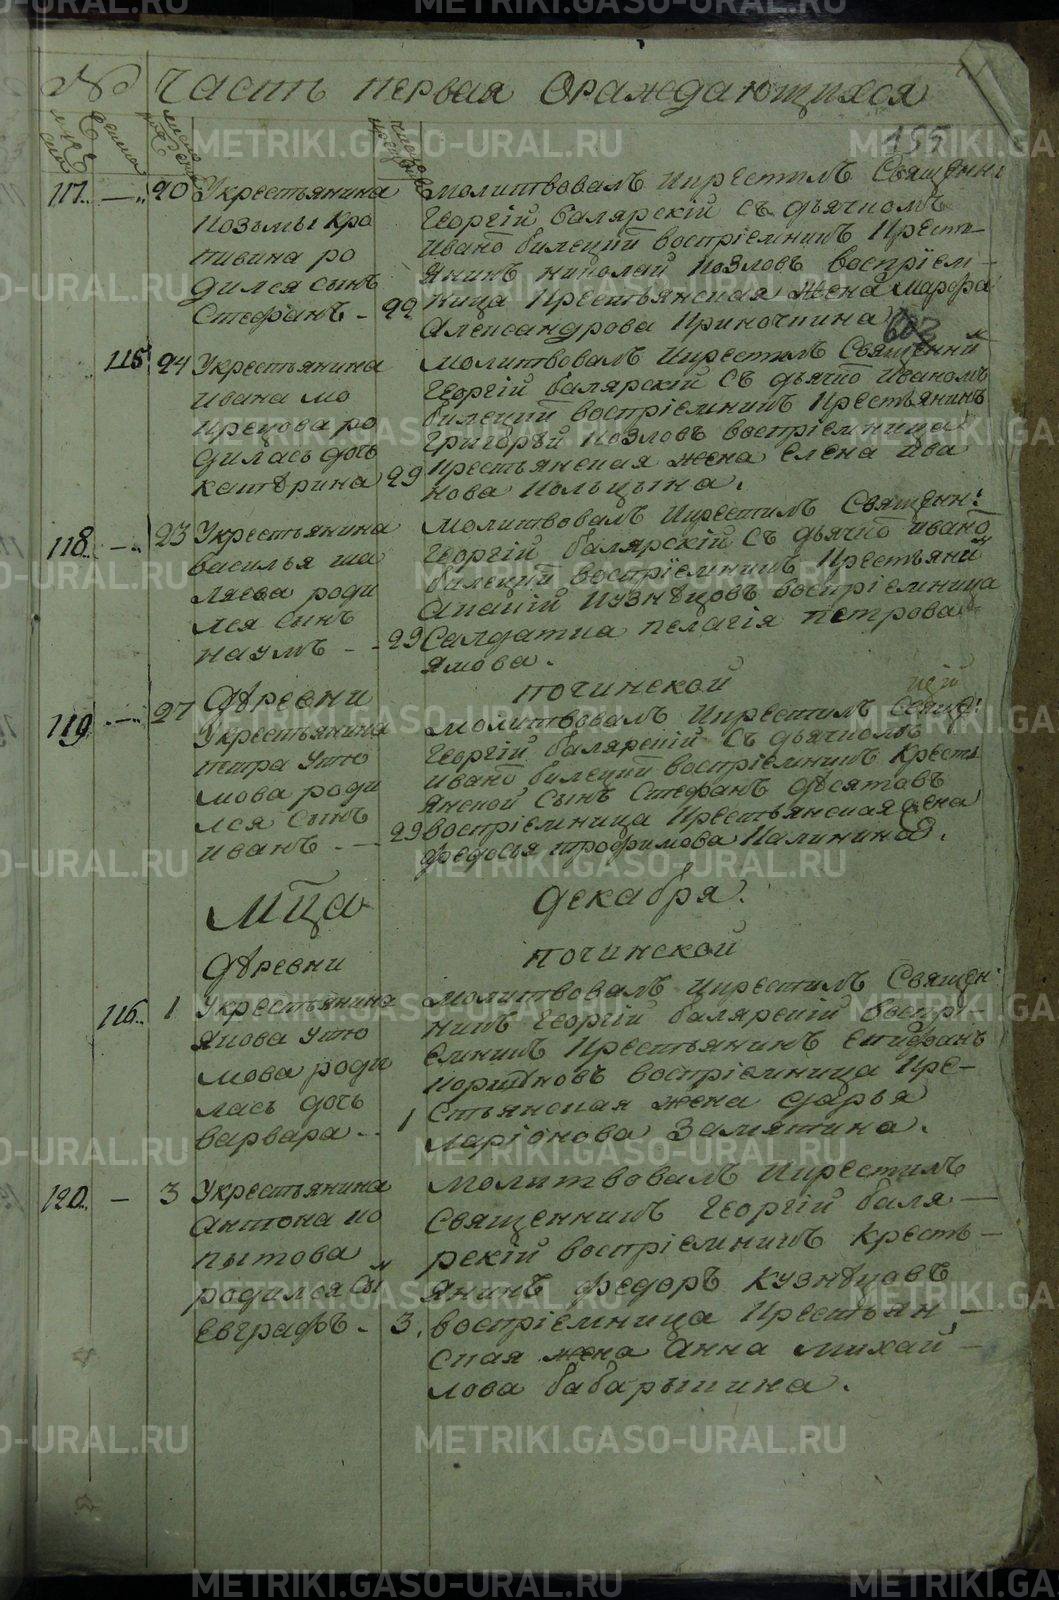 № Часть первая ораждающихся
155
117. 20 Укрестьянина
Козьмы Кро
тивина ро
дился сынъ
Стефанъ - 29
молитвовалъ икрестилъ Священни
Георгій балярскій съ дьячкомъ
Ивано билецкий воспріемникъ Крест
янинъ николай Козловъ воспріем-
ница Крестьянская жена марфа
Александрова Криночкина
603
115 24 Укрестьянина
ивана мо
крецова ро
дилась дочь
катѣрина 29
молитвовалъ икрестилъ Священни
Георгій балярскій съ дьячко Иваномъ
билецкий воспріемникъ Крестьянинъ
григорѣй Козловъ воспріемница
Крестьянская жена Елена ива
нова Кольцына.
118. 23 Укрестьянина
василья ша
ляева роди
лся сынъ
наумъ - 29
молитвовалъ икрестилъ Священн:
Георгій балярскій съ дьячко ивано
билецкий воспріемникъ Крестьяни
Апанай Кузнѣцовъ воспріемница
Салдатка пелагія петрова
Ямова.
Дѣревни починской
119 27 Укрестьянина
петра Уто
мова роди
лся сынъ
иванъ. - 29
молитвовалъ икрестилъ Свящ:
Георгій балярский съ дьячкомъ
ивано билецкий воспріемникъ Кресть
янской сынъ Стефанъ Дѣсятовъ
воспріемница Крестьянская жена
федосья трофимова Калинина.
мца декабря.
Дѣревни починской
116. 1 Укрестьянина
якова Уто
мова роди
лась дочь
варвара - 1
молитвовалъ икрестилъ Священ:
никъ Георгій балярский воспрі-
емникъ Крестьянинъ Епифанъ
поршновъ воспріемница Кре-
стьянская жена дарья
ларіонова Замятина.
120. 3 Укрестьянина
антона ко
пытова
родился сы
Евграфъ - 3.
молитвовалъ икрестилъ
Священникъ Георгій баля-
рскій воспріемникъ кресть-
янинъ федоръ кузнѣцовъ
воспріемница Крестьян-
ская жена анна михай-
лова бабарыкина.
METRIKI.GASO-URAL.RU